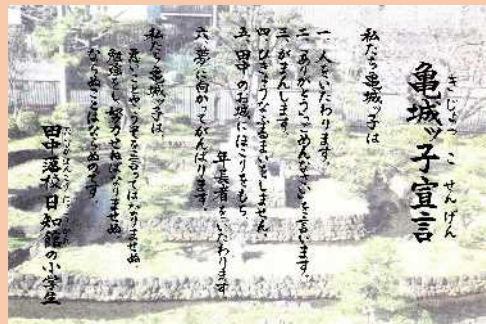 亀城ッ子宣言
きじょっこせんげん
私たち亀城ッ子は
一、人をいたわります。
二、「ありがとう」「ごめんなさい」を言います。
三、がまんします。
四、ひきょうなふるまいをしません。
五、田中のお城にほこりをもち、
年長者をいたわります
六、夢に向かってがんばります。
私たち亀城ッ子は
悪いことやうそを言ってはなりませぬ、
勉強をし、努力せねばなりませぬ
ならぬことはならぬものです。
田中藩校日知館の小学生